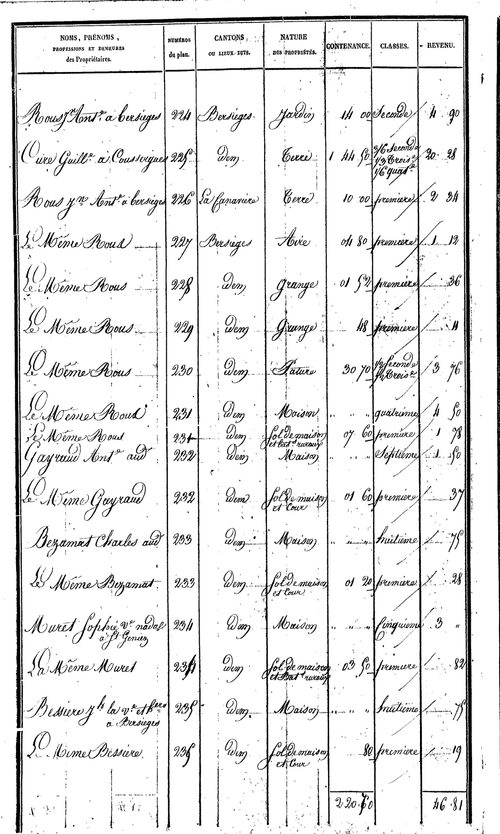 NOMS, PRÉNOMS, PROFESSIONS ET DEMEURES des Propriétaires. NUMÉROS du plan. CANTONS OU LIEUX-DITS. NATURE DES PROPRIÉTÉS. CONTENANCE. CLASSES. REVENU.
Rous Jn Ante à bersièges 224 Bersièges Jardin 14 00 Seconde 4 90
Cure Guille à Coussergues 225 idem Terre 1 44 50 3/6 seconde 1/3 Troise 1/6 quate 20 28
Rous Jn Ante à bersièges 226 La Canavière Terre 10 00 première 2 34
Le Même Rous 227 Bersièges Aire 04 80 première 1 12
Le Même Rous 228 idem Grange 01 52 première 36
Le Même Rous 229 idem Grange 48 première 11
Le Même Rous 230 idem Pature 30 70 1/2 Seconde 1/2 Troise 3 76
Le Même Rous 231 idem Maison " " quatrième 4 50
Le Même Rous 231 idem Sol de maison et batts ruraux 07 60 première 1 78
Gayraud Ante aud 232 idem Maison " " Septième 1 50
Le Même Gayraud 232 idem Sol de maison et Cour 01 60 première 37
Bezamat Charles aud 233 idem Maison " " huitième 75
Le Même Bezamat 233 idem Sol de maison et Cour 01 20 première 28
Muret Sophie ve nadal 234 idem Maison " " " Cinquième 3 "
à St Geniez
La Même Muret 234 idem Sol de maison et Batts ruraux 03 50 première 82
Bessière Jh la ve et hers 235 idem Maison " " " huitième 75
à Bersièges
Le Même Bessière 235 idem Sol de maison et Cour 80 première 19
2 20 70 46 81